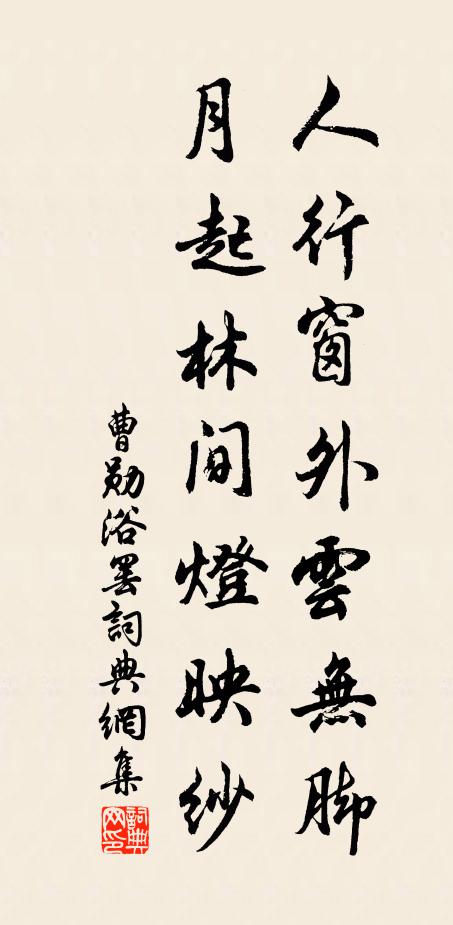 人行窗外雲無脚
月起林間燈映紗
曹勛浴罷詞典網集
詞典网印